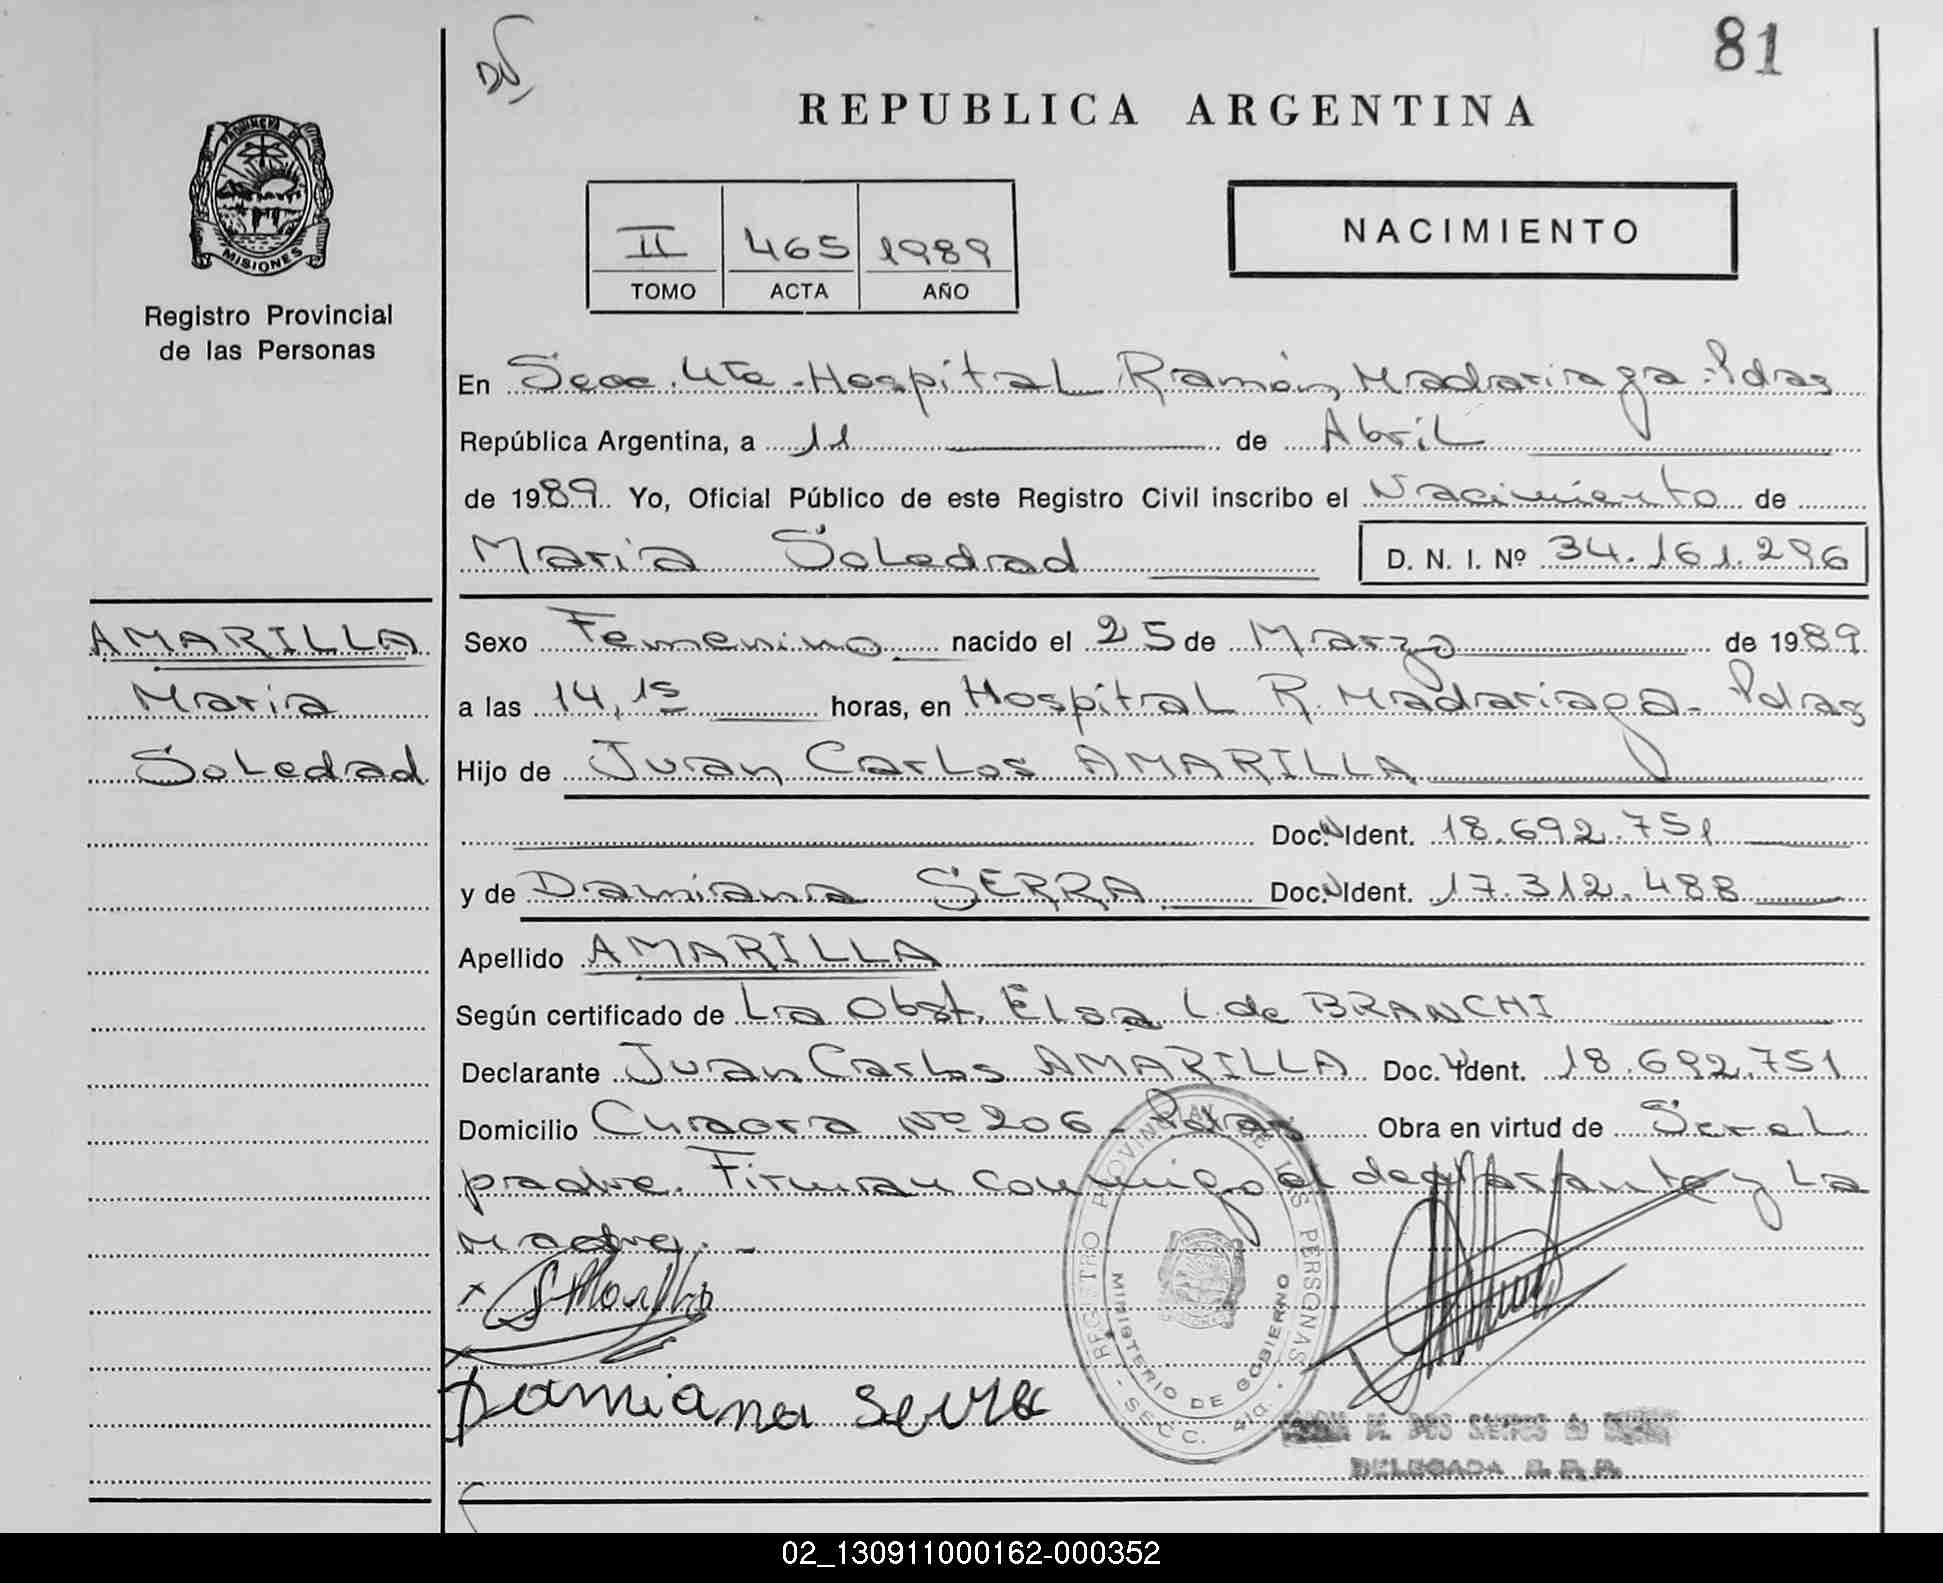 81
REPUBLICA ARGENTINA
PROVINCIA DE
MISIONES
Registro Provincial
de las Personas
II 465 1989
TOMO ACTA AÑO
NACIMIENTO
En Secc. 4ta. Hospital Ramón Madariaga - Pdas
República Argentina, a 11 de Abril
de 1989. Yo, Oficial Público de este Registro Civil inscribo el Nacimiento de
Maria Soledad D. N. I. Nº 34.161.296
AMARILLA
Maria
Soledad
Sexo Femenino nacido el 25 de Marzo de 1989.
a las 14,15 horas, en Hospital R. Madariaga - Pdas
Hijo de Juan Carlos AMARILLA
Doc. Ident. 18.692.751
y de Damiana SERRA Doc. Ident. 17.312.488
Apellido AMARILLA
Según certificado de La Obst. Elsa L. de BRANCHI
Declarante Juan Carlos AMARILLA Doc. Ident. 18.692.751
Domicilio Nº 206 - Pdas Obra en virtud de Ser el
padre. Firman conmigo el declarante y La
Madre. -
Damiana Serra
REGISTRO PROVINCIAL DE LAS PERSONAS
MINISTERIO DE GOBIERNO
- SECC. 4ta. -
M. DOS SANTOS de
DELEGADA
02_130911000162-000352